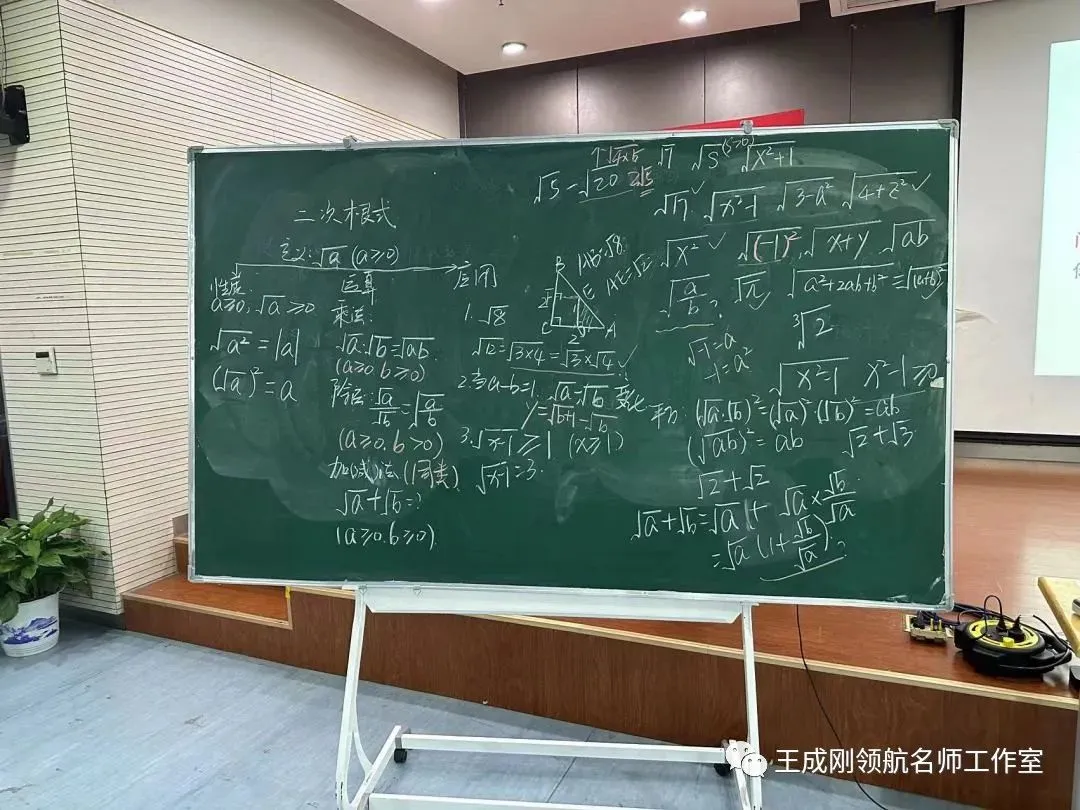 二次根式
定义:√a (a≥0)
性质:
a≥0,√a≥0
√a² = |a|
(√a)² = a
运算
乘法:
√a·√b=√ab
(a≥0.b≥0)
除法: √a/√b=√(a/b)
(a≥0.b>0)
加减法(同类)
√a+√b=?
(a≥0.b≥0)
应用
1.√8
√12=√(3×4)=√3×√4 ✓
2.当a-b=1.√a-√b 变化
y=√(b+1)-√b
3.√(x-1)≥1 (x≥1)
√(x-1)=3.
B
E
C
D
A
2
AB=√8
AE=√2
√5-√20
√(4×5)
2√5
√7 √S(S>0) √(x²+1)
√17 ✓ √(x²-1) √(3-a²) √(4+z²) ✓
√x² ✓ √(-1)² √(x+y) √ab
√(a/b)? √π ✓ √(a²+2ab+b²)=√(a+b)²
√-1=a
-1=a²
³√2
√(x²-1) x²-1≥0
平方:(√a·√b)²=(√a)²(√b)²=ab
(√ab)²=ab √2+√3
√2+√2
√a+√b=√a(1+ √a×√b/√a
=√a(1+√b/√a)?
王成刚领航名师工作室